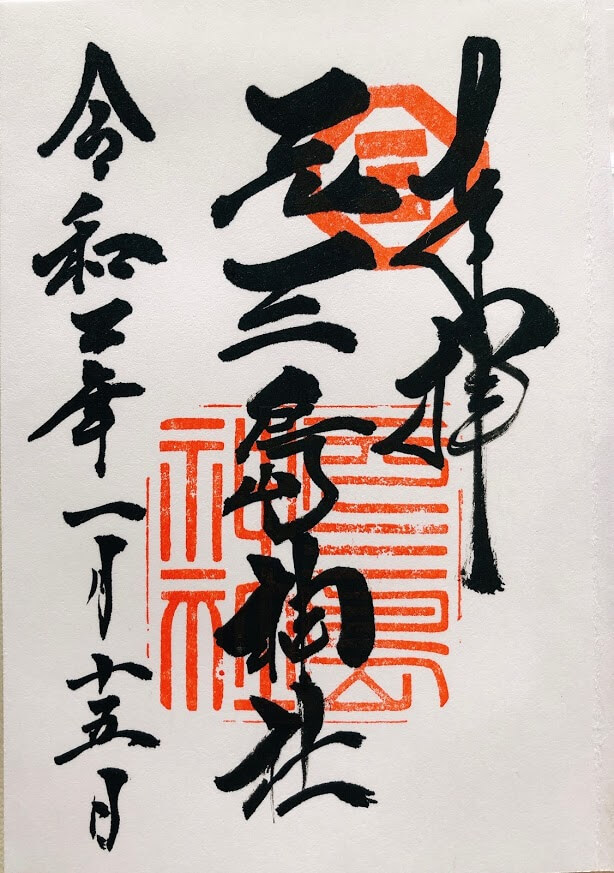 奉拝
元三島神社
令和二年一月十五日
元三島
神社